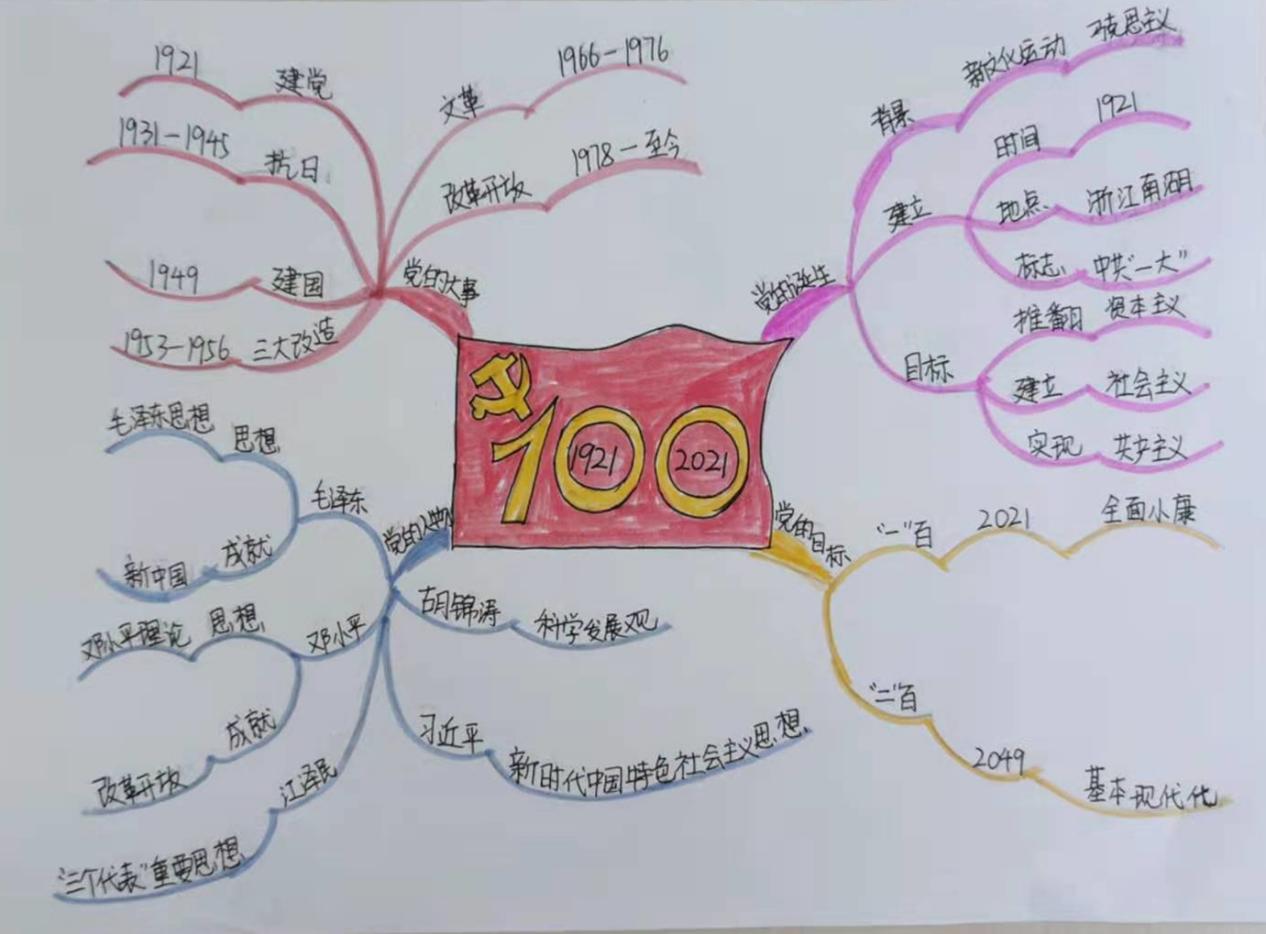 1921
建党
1931-1945
抗日
1949
建国
1953-1956
三大改造
文革
1966-1976
改革开放
1978-至今
党的大事
党的诞生
背景
新文化运动
马克思主义
建立
时间
1921
地点
浙江南湖
标志
中共"一大"
目标
推翻
资本主义
建立
社会主义
实现
共产主义
100
1921
2021
党的人物
毛泽东
思想
毛泽东思想
成就
新中国
邓小平
思想
邓小平理论
成就
改革开放
江泽民
"三个代表"重要思想
胡锦涛
科学发展观
习近平
新时代中国特色社会主义思想
党的目标
"一"百
2021
全面小康
"二"百
2049
基本现代化